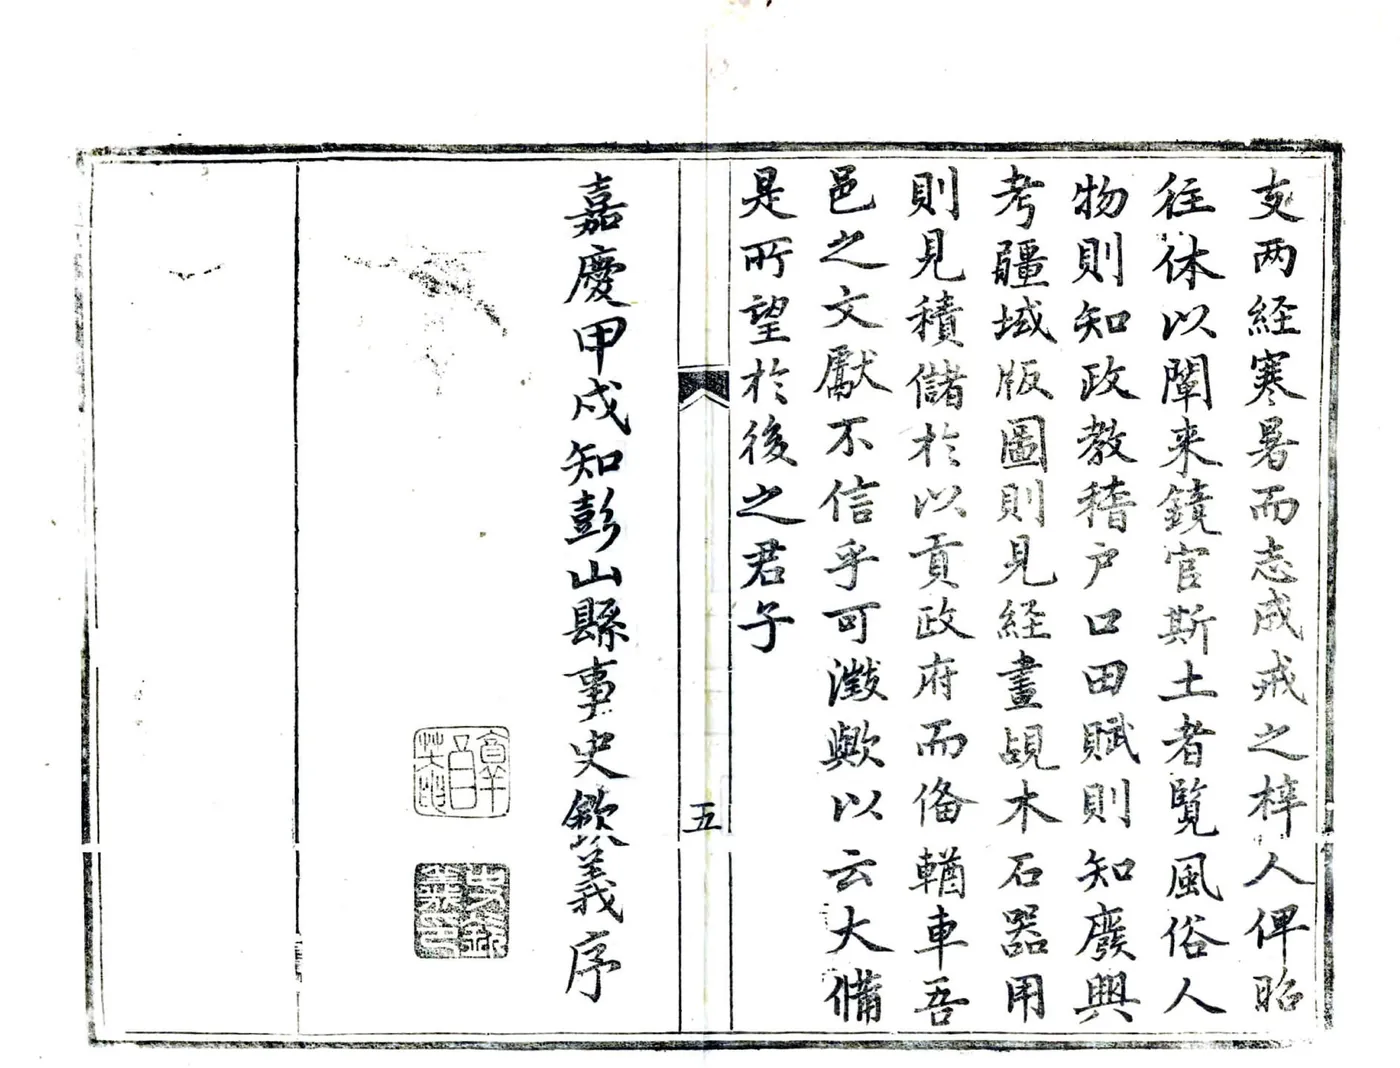 支两經寒暑而志成戒之梓人俾昭
往休以闡来鏡官斯土者覽風俗人
物則知政教稽户口田賦則知廢興
考疆域版圖則見經畫覘木石器用
則見積儲於以貢政府而俻輶車吾
邑之文獻不信乎可徵歟以云大備
是所望於後之君子
五
嘉慶甲戌知彭山縣事史欽義序